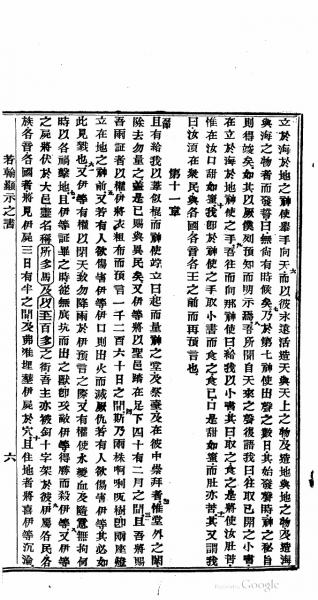 立於海於地之神使舉手向天而以彼永遠活造天與天上之物及造地與地之物及造海
與海之物者而發誓曰無尚有時候矣乃於第七神使出聲之數日其始發聲時神之秘旨
則得竣矣如其以厥僕則預知而明示焉吾所聞自天來之聲復謂我曰往取已開之小書
在立於海於地神使之手吾往而向那神使曰給我以小書其曰取之食之是將使汝肚苦
惟在汝口甜如蜜我卽於神使之手取小書而食之食已口是甜如蜜而肚亦苦其又謂我
曰汝須在衆民與各國各音各王之前而再預言也
第十一章
且有給我以葦似棍而神使竚立曰起而量神之堂及祭臺及在彼中崇拜者惟堂外之閣
除去勿量之蓋是已賜與異民矣又伊等將以聖邑踏在足下四十有二月之間且吾將賜
吾兩証者以權伊將衣粗布而預言一千二百六十日之間斯乃兩株樹卽兩座燈
立在地之神前又若有人欲傷害伊等伊口則出火而滅厥仇若有人欲傷害伊等其必如
此見戮也又伊等有權以閉天致勿降雨於伊預言之際又有權使水變血及隨意無拘何
時以各禍擊地且伊等證畢之時從無底坑而出之獸卽交敵伊等得勝而殺伊等又伊等
之屍將伏于大邑靈名稱所多馬及以至百多之街吾主亦被釘十字架於彼伊屬各民各
族各音各國者將見伊屍三日有半之間及弗准埋塟伊屍于穴且住地者將喜伊等沉淪
若翰顯示之書 六
Google